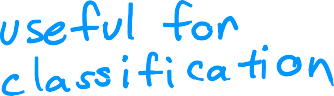 useful for
classification